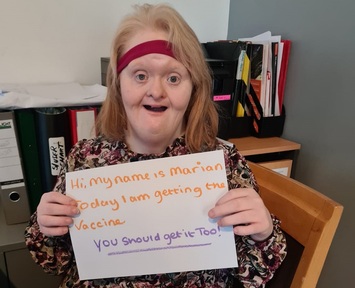 Hi, my name is Marian
Today I am getting the
Vaccine
YOU should get it Too!